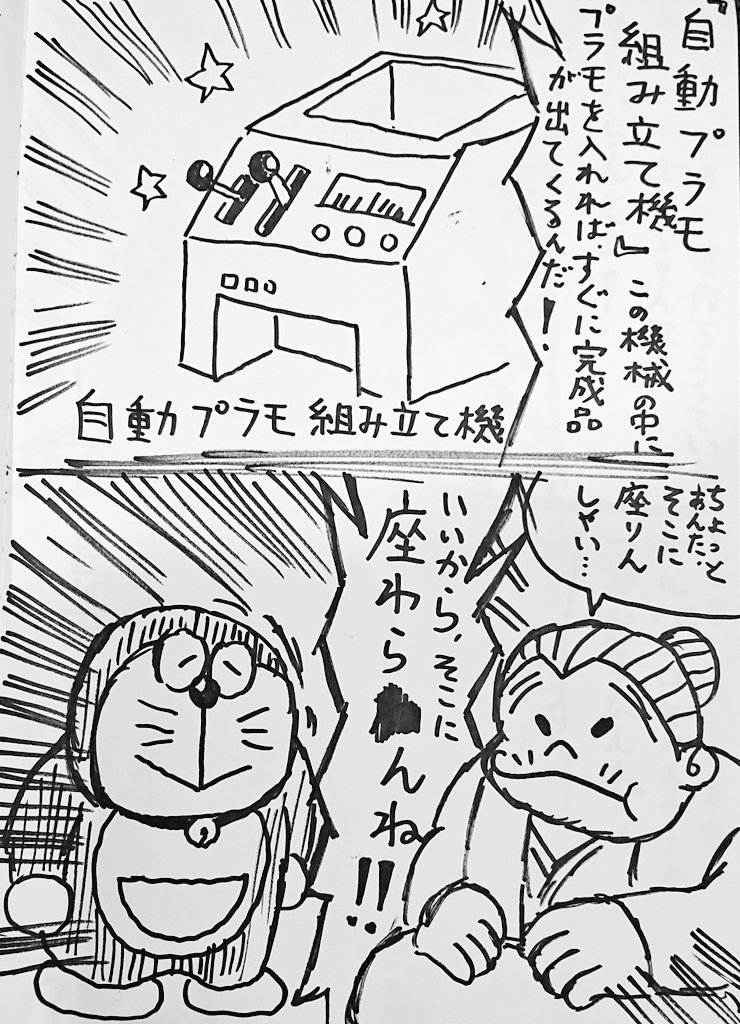 『自動プラモ
組み立て機』この機械の中に
プラモを入れれば、すぐに完成品
が出てくるんだ!
自動プラモ組み立て機
ちょっと
おんた、
そこに
座りん
しゃい…
いいから、そこに
座わらんね!!